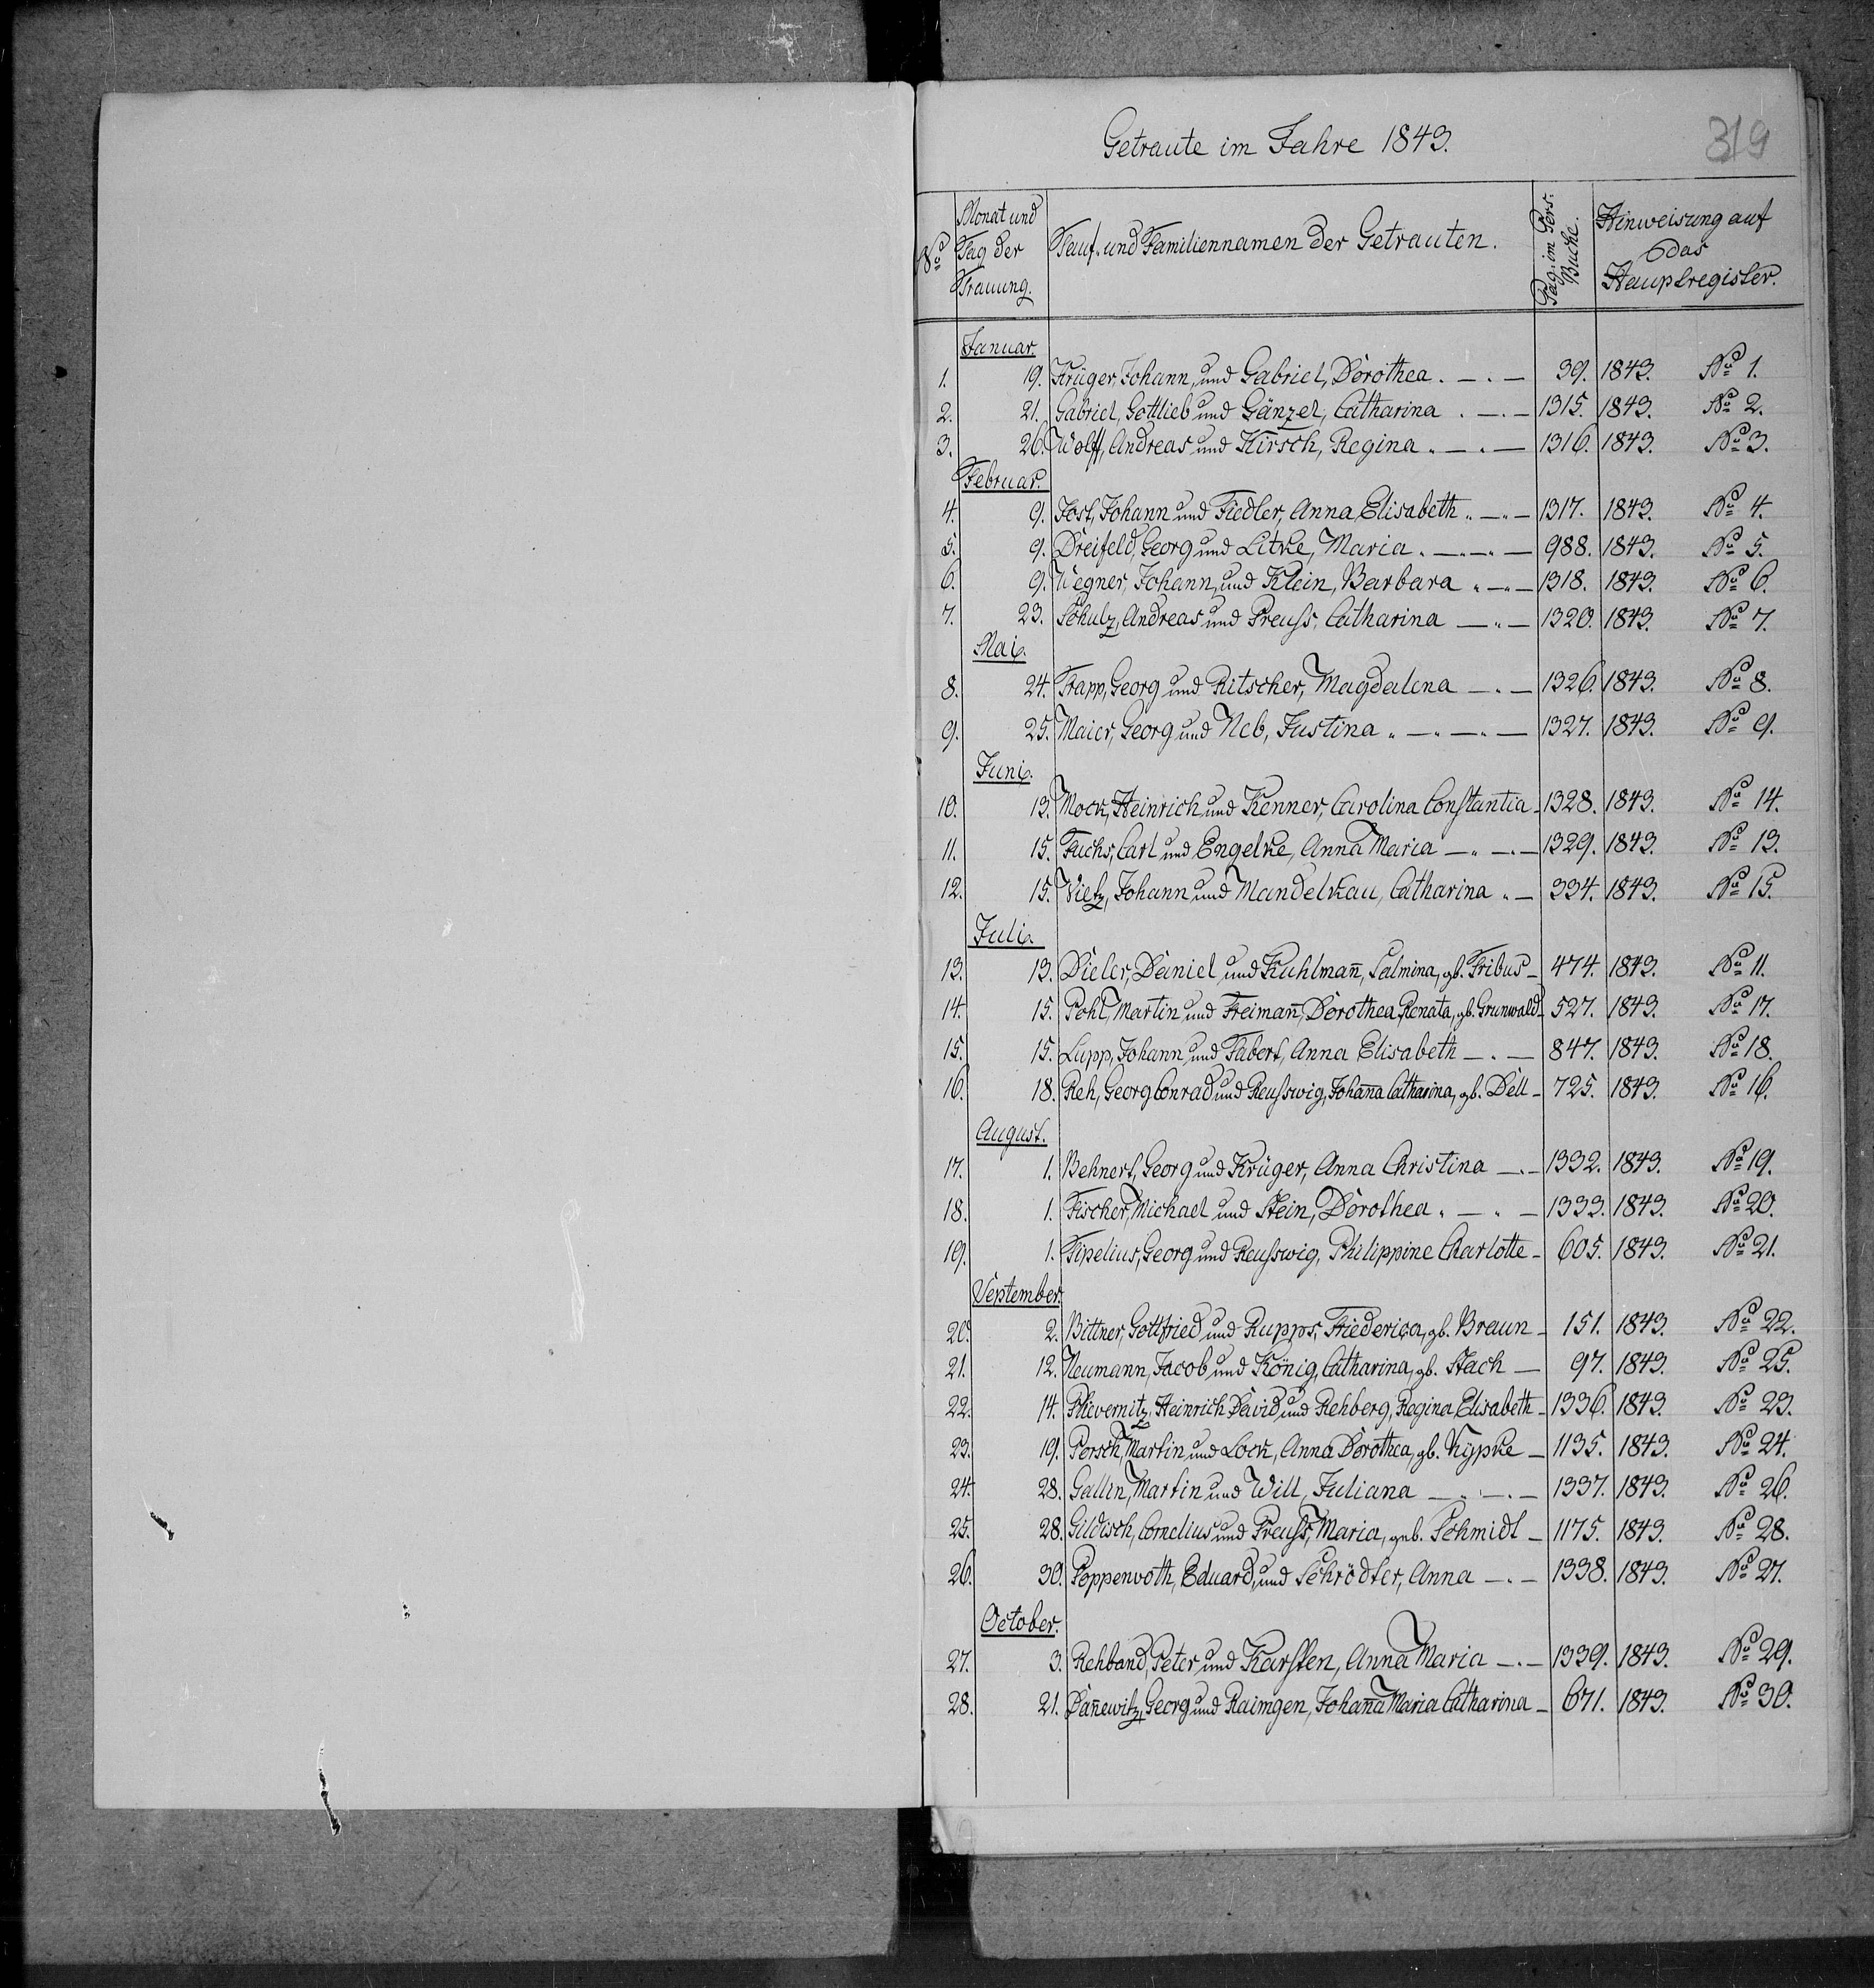 319
Getraute im Jahre 1843.
No
Monat und Tag der Trauung.
Tauf- und Familiennamen der Getrauten.
Pag. im Pers: Buche.
Hinweisung auf das Hauptregister.
Januar.
1. 19. Krüger, Johann, und Gabriel, Dorothea. — . — 39. 1843. No 1.
2. 21. Gabriel, Gottlieb und Gänzel, Catharina . — . — 1315. 1843. No 2.
3. 26. Wolff, Andreas und Hirsch, Regina . — . — 1316. 1843. No 3.
Februar.
4. 9. Jost, Johann und Fiedler, Anna Elisabeth . — . — 1317. 1843. No 4.
5. 9. Dreifeld, Georg und Litke, Maria . — . — . — 988. 1843. No 5.
6. 9. Wegner, Johann, und Klein, Barbara . — . — 1318. 1843. No 6.
7. 23. Schulz, Andreas und Preuss, Catharina — . — 1320. 1843. No 7.
Mai.
8. 24. Trapp, Georg und Ritscher, Magdalena — . — 1326. 1843. No 8.
9. 25. Maier, Georg und Neb, Justina . — . — . — 1327. 1843. No 9.
Juni.
10. 13. Mock, Heinrich und Kenner, Carolina Constantia — 1328. 1843. No 14.
11. 15. Fuchs, Carl und Engelke, Anna Maria — . — . — 1329. 1843. No 13.
12. 15. Vietz, Johann und Mandelkau, Catharina . — 334. 1843. No 15.
Juli.
13. 13. Dieler, Daniel und Kuhlmañ, Salmina, gb. Fribus — 474. 1843. No 11.
14. 15. Pohl, Martin und Freimañ, Dorothea Renata, gb. Grunwald — 527. 1843. No 17.
15. 15. Lupp, Johann und Fabert, Anna Elisabeth — . — 847. 1843. No 18.
16. 18. Reh, Georg Conrad und Reusswig, Johaña Catharina, gb. Dell — 725. 1843. No 16.
August.
17. 1. Behnert, Georg und Krüger, Anna Christina — . — 1332. 1843. No 19.
18. 1. Fischer, Michael und Stein, Dorothea . — . — 1333. 1843. No 20.
19. 1. Fipelius, Georg und Reusswig, Philippine Charlotte — 605. 1843. No 21.
September.
20. 2. Bittner, Gottfried und Rupps, Friederica, gb. Braun — 151. 1843. No 22.
21. 12. Neumann, Jacob und König, Catharina, gb. Stach — 97. 1843. No 25.
22. 14. Plievernitz, Heinrich David und Rehberg, Regina Elisabeth — 1336. 1843. No 23.
23. 19. Porsch, Martin und Lock, Anna Dorothea, gb. Kypke — 1135. 1843. No 24.
24. 28. Gallin, Martin und Will, Juliana — . — . — 1337. 1843. No 26.
25. 28. Gildisch, Cornelius und Preuss, Maria, geb. Schmidt — 1175. 1843. No 28.
26. 30. Poppenvoth, Eduard, und Schrödter, Anna — . — 1338. 1843. No 27.
October.
27. 3. Rehband, Peter und Karsten, Anna Maria — . — 1339. 1843. No 29.
28. 21. Dañewitz, Georg und Raimgen, Johaña Maria Catharina — 671. 1843. No 30.